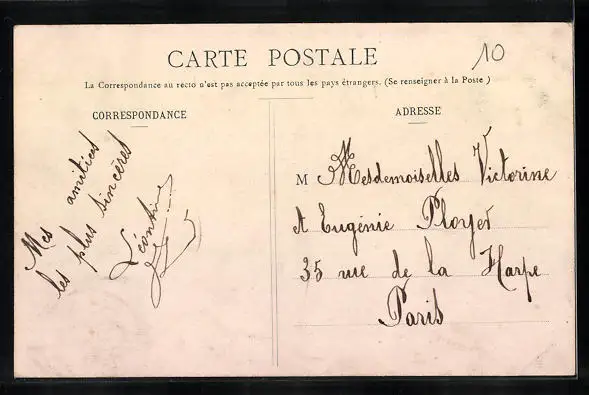 CARTE POSTALE
10
La Correspondance au recto n'est pas acceptée par tous les pays étrangers. (Se renseigner à la Poste)
CORRESPONDANCE
Mes amitiées
les plus sincères
Léontine
ADRESSE
M Mesdemoiselles Victorine
et Eugénie Ployer
35 rue de la Harpe
Paris